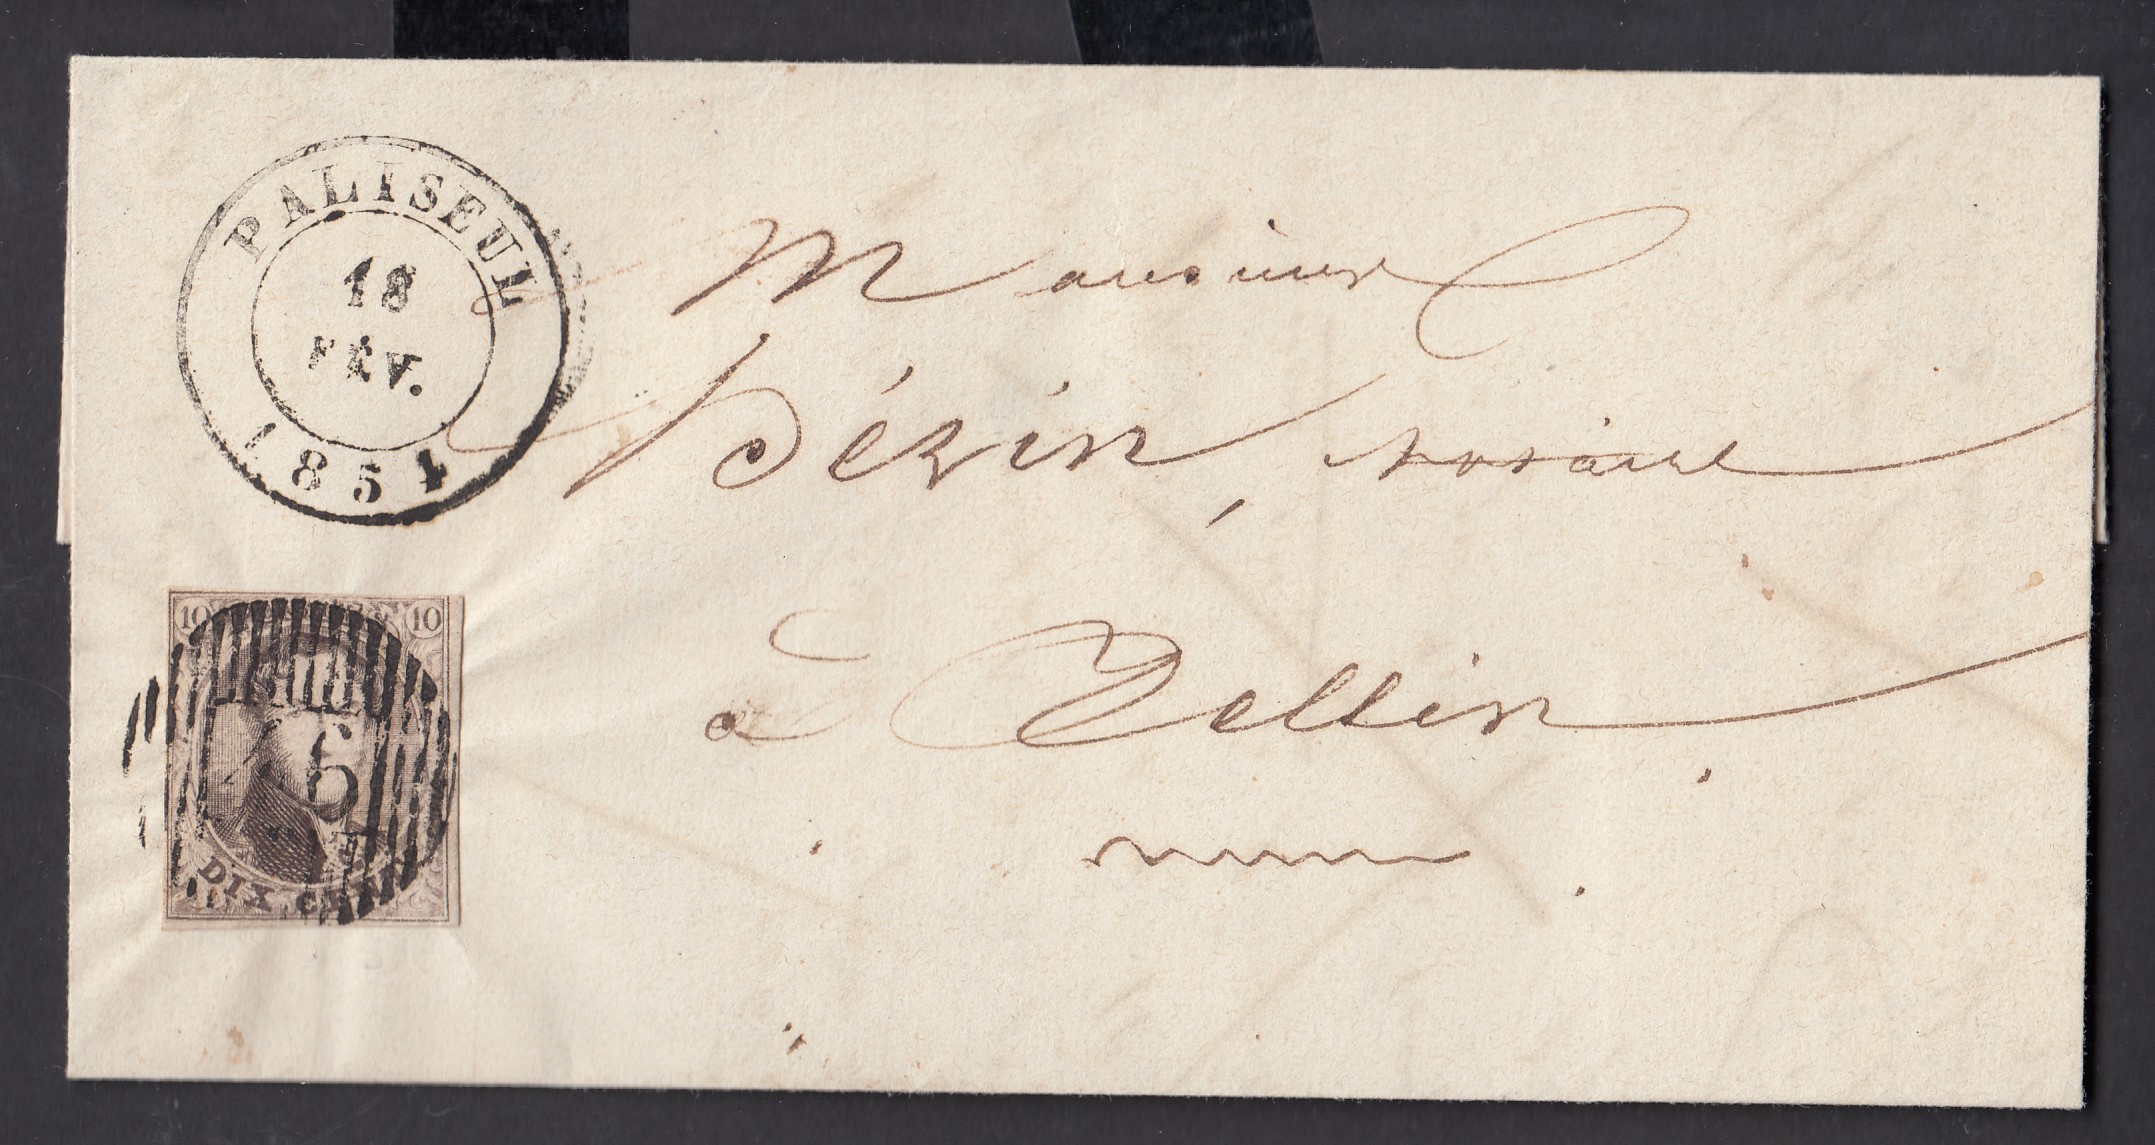 PALISEUL
18
FÉV.
1854
Monsieur
Dérin, notaire
à Tellin
10 10
DIX CEN